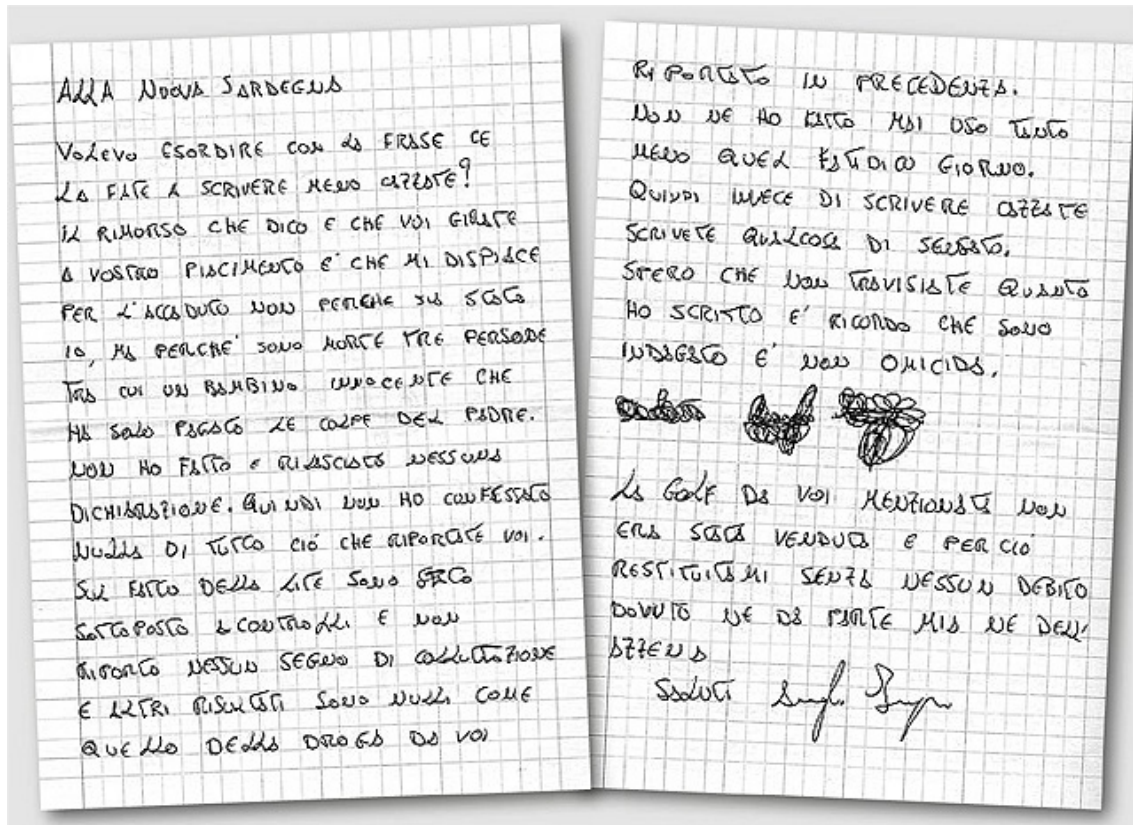 ALLA NUOVA SARDEGNA
VOLEVO ESORDIRE CON LA FRASE CE
LA FATE A SCRIVERE MENO CAZZATE?
IL RIMORSO CHE DICO E CHE VOI GIRATE
A VOSTRO PIACIMENTO E' CHE MI DISPIACE
PER L'ACCADUTO NON PERCHE SIA STATO
IO, MA PERCHE' SONO MORTE TRE PERSONE
TRA CUI UN BAMBINO INNOCENTE CHE
HA SOLO PAGATO LE COLPE DEL PADRE.
NON HO FATTO E RILASCIATO NESSUNA
DICHIARAZIONE. QUINDI NON HO CONFESSATO
NULLA DI TUTTO CIÓ CHE RIPORTATE VOI.
SUL FATTO DELLA LITE SONO STATO
SOTTOPOSTO A CONTROLLI E NON
RIPORTO NESSUN SEGNO DI COLLUTAZIONE
E ALTRI RISULTATI SONO NULLI COME
QUELLO DELLA DROGA DA VOI
RIPORTATO IN PRECEDENZA.
NON NE HO FATTO MAI USO TANTO
MENO QUEL FATIDICO GIORNO.
QUINDI INVECE DI SCRIVERE CAZZATE
SCRIVETE QUALCOSA DI SENSATO.
SPERO CHE NON TRAVISIATE QUANTO
HO SCRITTO E' RICORDO CHE SONO
INDAGATO E' NON OMICIDA.
LA GOLF DA VOI MENZIONATA NON
ERA STATA VENDUTA E PERCIÓ
RESTITUITAMI SENZA NESSUN DEBITO
DOVUTO NE DA PARTE MIA NE DELL'
AZZENA
SALUTI